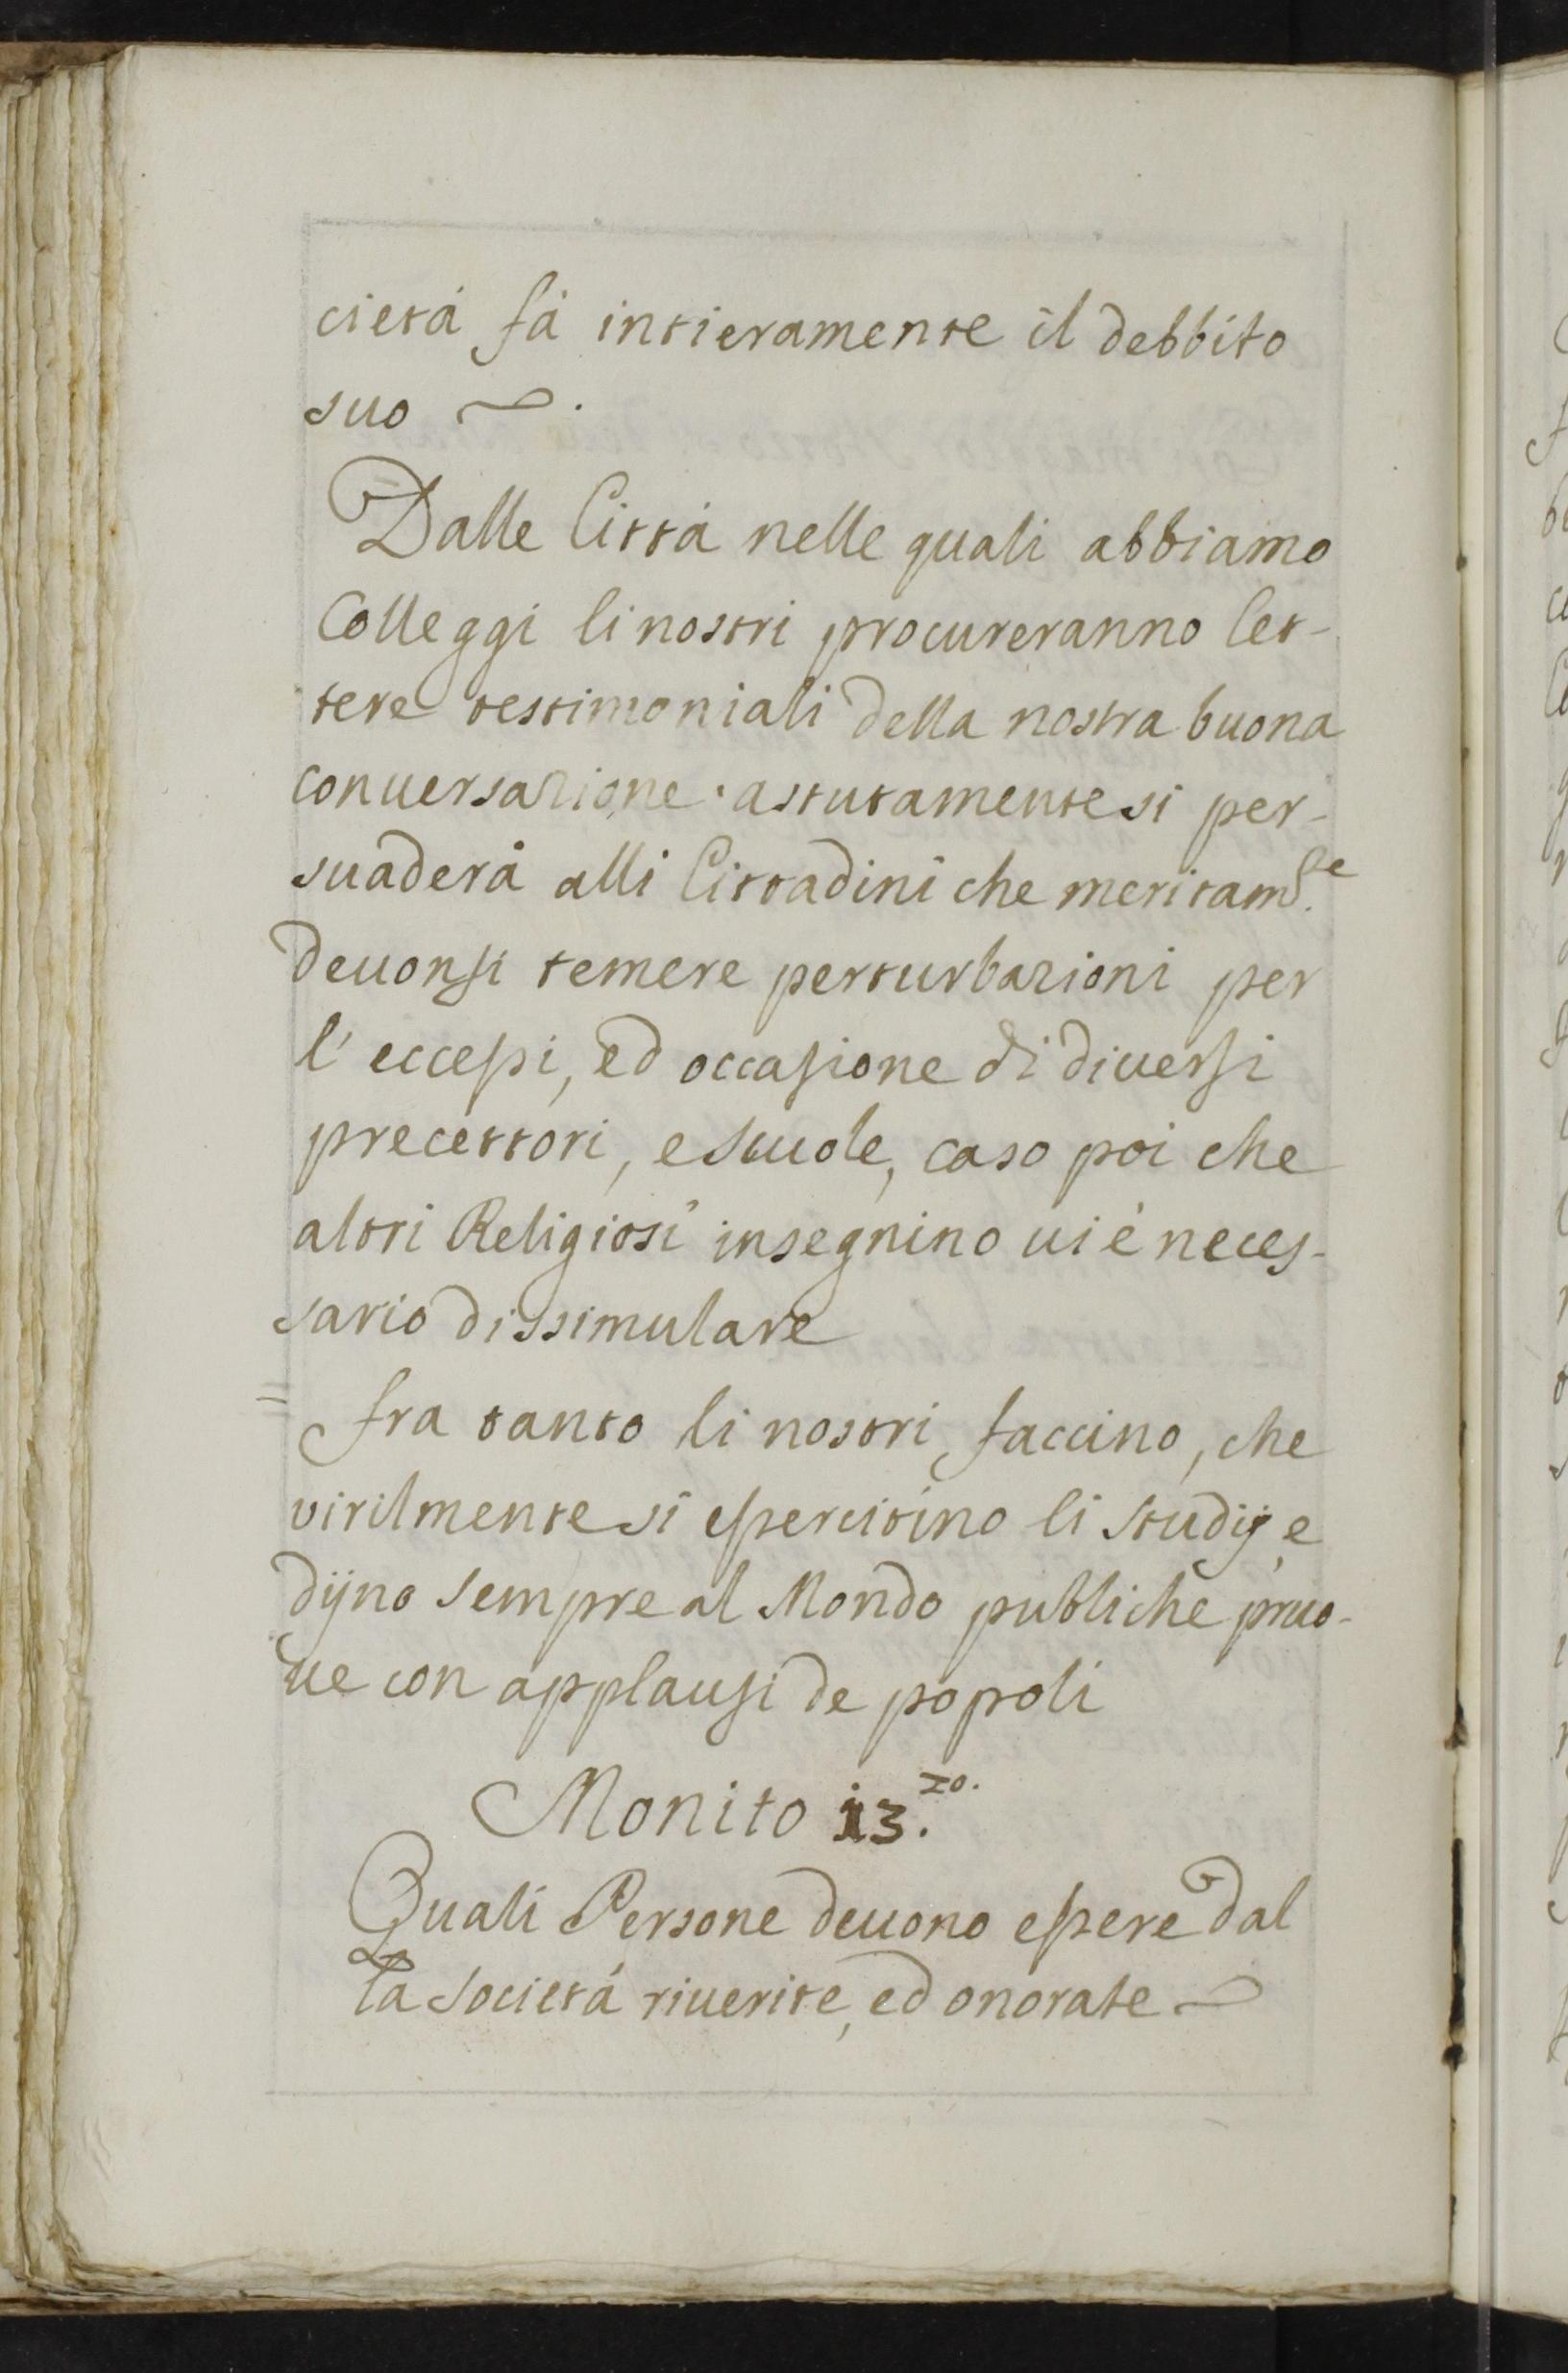 cietá fà intieramente il debbito
suo ~.
Dalle Cittá nelle quali abbiamo
Colleggi li nostri procureranno let-
tere testimoniali della nostra buona
conuersazione. astutamente si per-
suaderà alli Cittadini che meritam.te
deuonsi temere perturbazioni per
l'eccessi, ed occasione di diuersi
precettori, e scuole, caso poi che
altri Religiosi insegnino ui è neces-
sario dissimulare
= fra tanto li nostri faccino, che
virilmente si essercitino li studij, e
dijno sempre al Mondo publiche pruo-
ue con applausi de popoli
Monito 13.zo.
Quali Persone deuono essere dal
la Societá riuerite, ed onorate ~